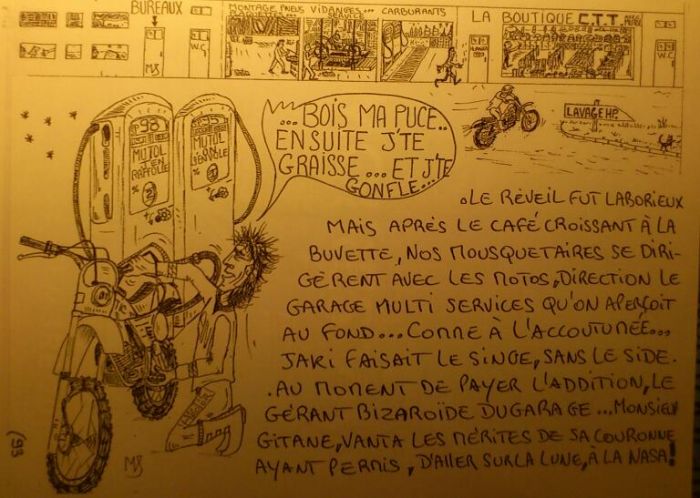 BUREAUX
W.C
MB
MONTAGE PNEUS VIDANGES...
SERVICE
CARBURANTS
LA BOUTIQUE C.T.T.
W.C
LAVAGE HP.
...BOIS MA PUCE..
ENSUITE J'TE
GRAISSE ... ET J'TE
GONFLE...
98
MUTOL
J'EN
RAFFOLE
2%
95
MUTOL
2%
.LE RÉVEIL FUT LABORIEUX
MAIS APRÈS LE CAFÉ CROISSANT À LA
BUVETTE, NOS MOUSQUETAIRES SE DIRI-
GÈRENT AVEC LES MOTOS, DIRECTION LE
GARAGE MULTI SERVICES QU'ON APERÇOIT
AU FOND... COMME À L'ACCOUTUMÉE...
JAKI FAISAIT LE SINGE, SANS LE SIDE.
.AU MOMENT DE PAYER L'ADDITION, LE
GÉRANT BIZAROÏDE DU GARAGE ... MONSIEUR
GITANE, VANTA LES MÉRITES DE SA COURONNE
AYANT PERMIS, D'ALLER SUR LA LUNE, À LA NASA!
MB
(93